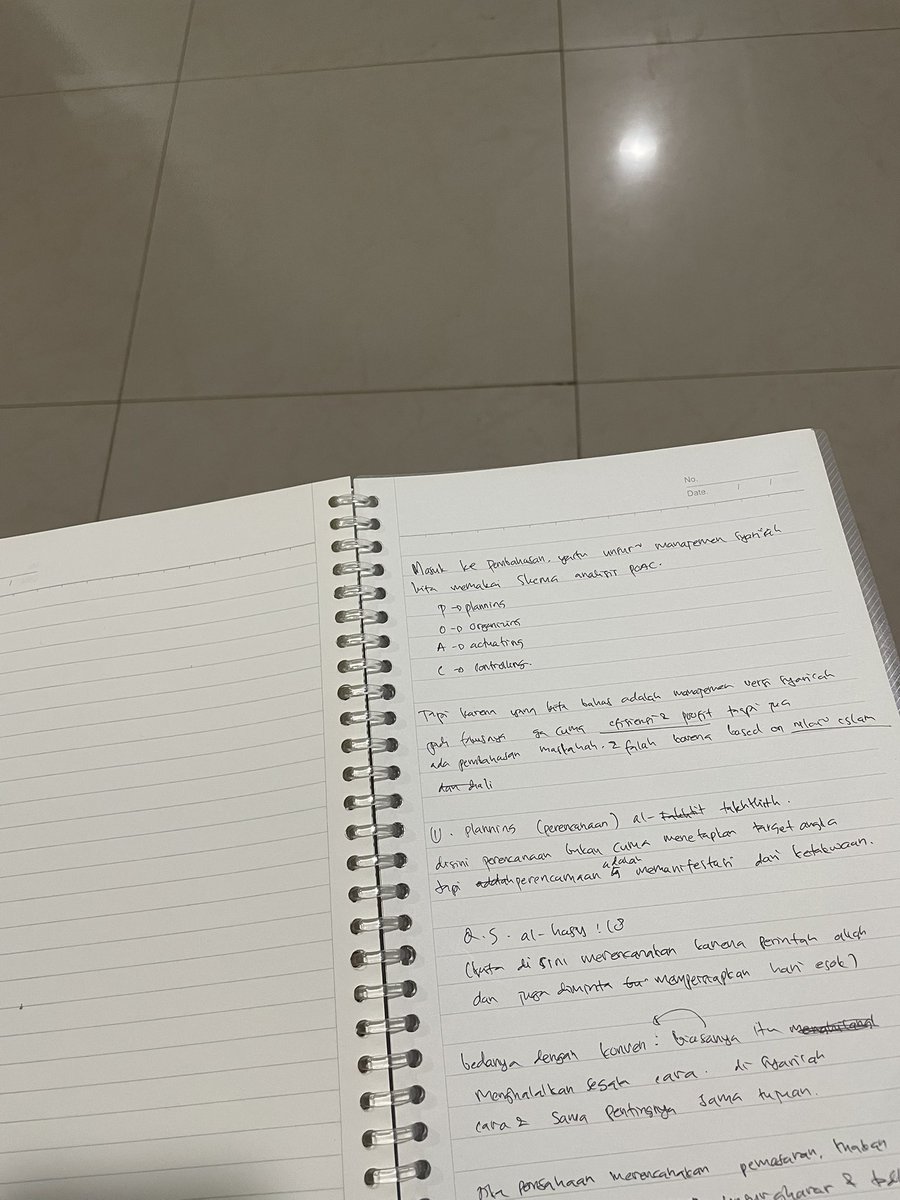 No.
Date. / /
Masuk ke pembahasan, yaitu unsur~ manajemen syariah
kita memakai skema analisis POAC.
P → planning
O → organizing
A → actuating
C → controlling.
Tapi karena yang kita bahas adalah manajemen versi syariah
jadi fokusnya ga cuma efisiensi & profit tapi jua
ada pembahasan maslahah. & falah karena based on nilai islam
①. planning (perencanaan) al- takhthith.
disini perencanaan bukan cuma menetapkan target angka
tapi perencanaan adalah memanifestasi dari ketakwaan.
Q.S. al-hasyr : 18
(kita di sini merencanakan karena perintah allah
dan juga diminta mempersiapkan hari esok)
bedanya dengan konven : biasanya itu
menghalalkan segala cara. di syariah
cara2 sama pentingnya sama tujuan.
perusahaan merencanakan pemasaran,